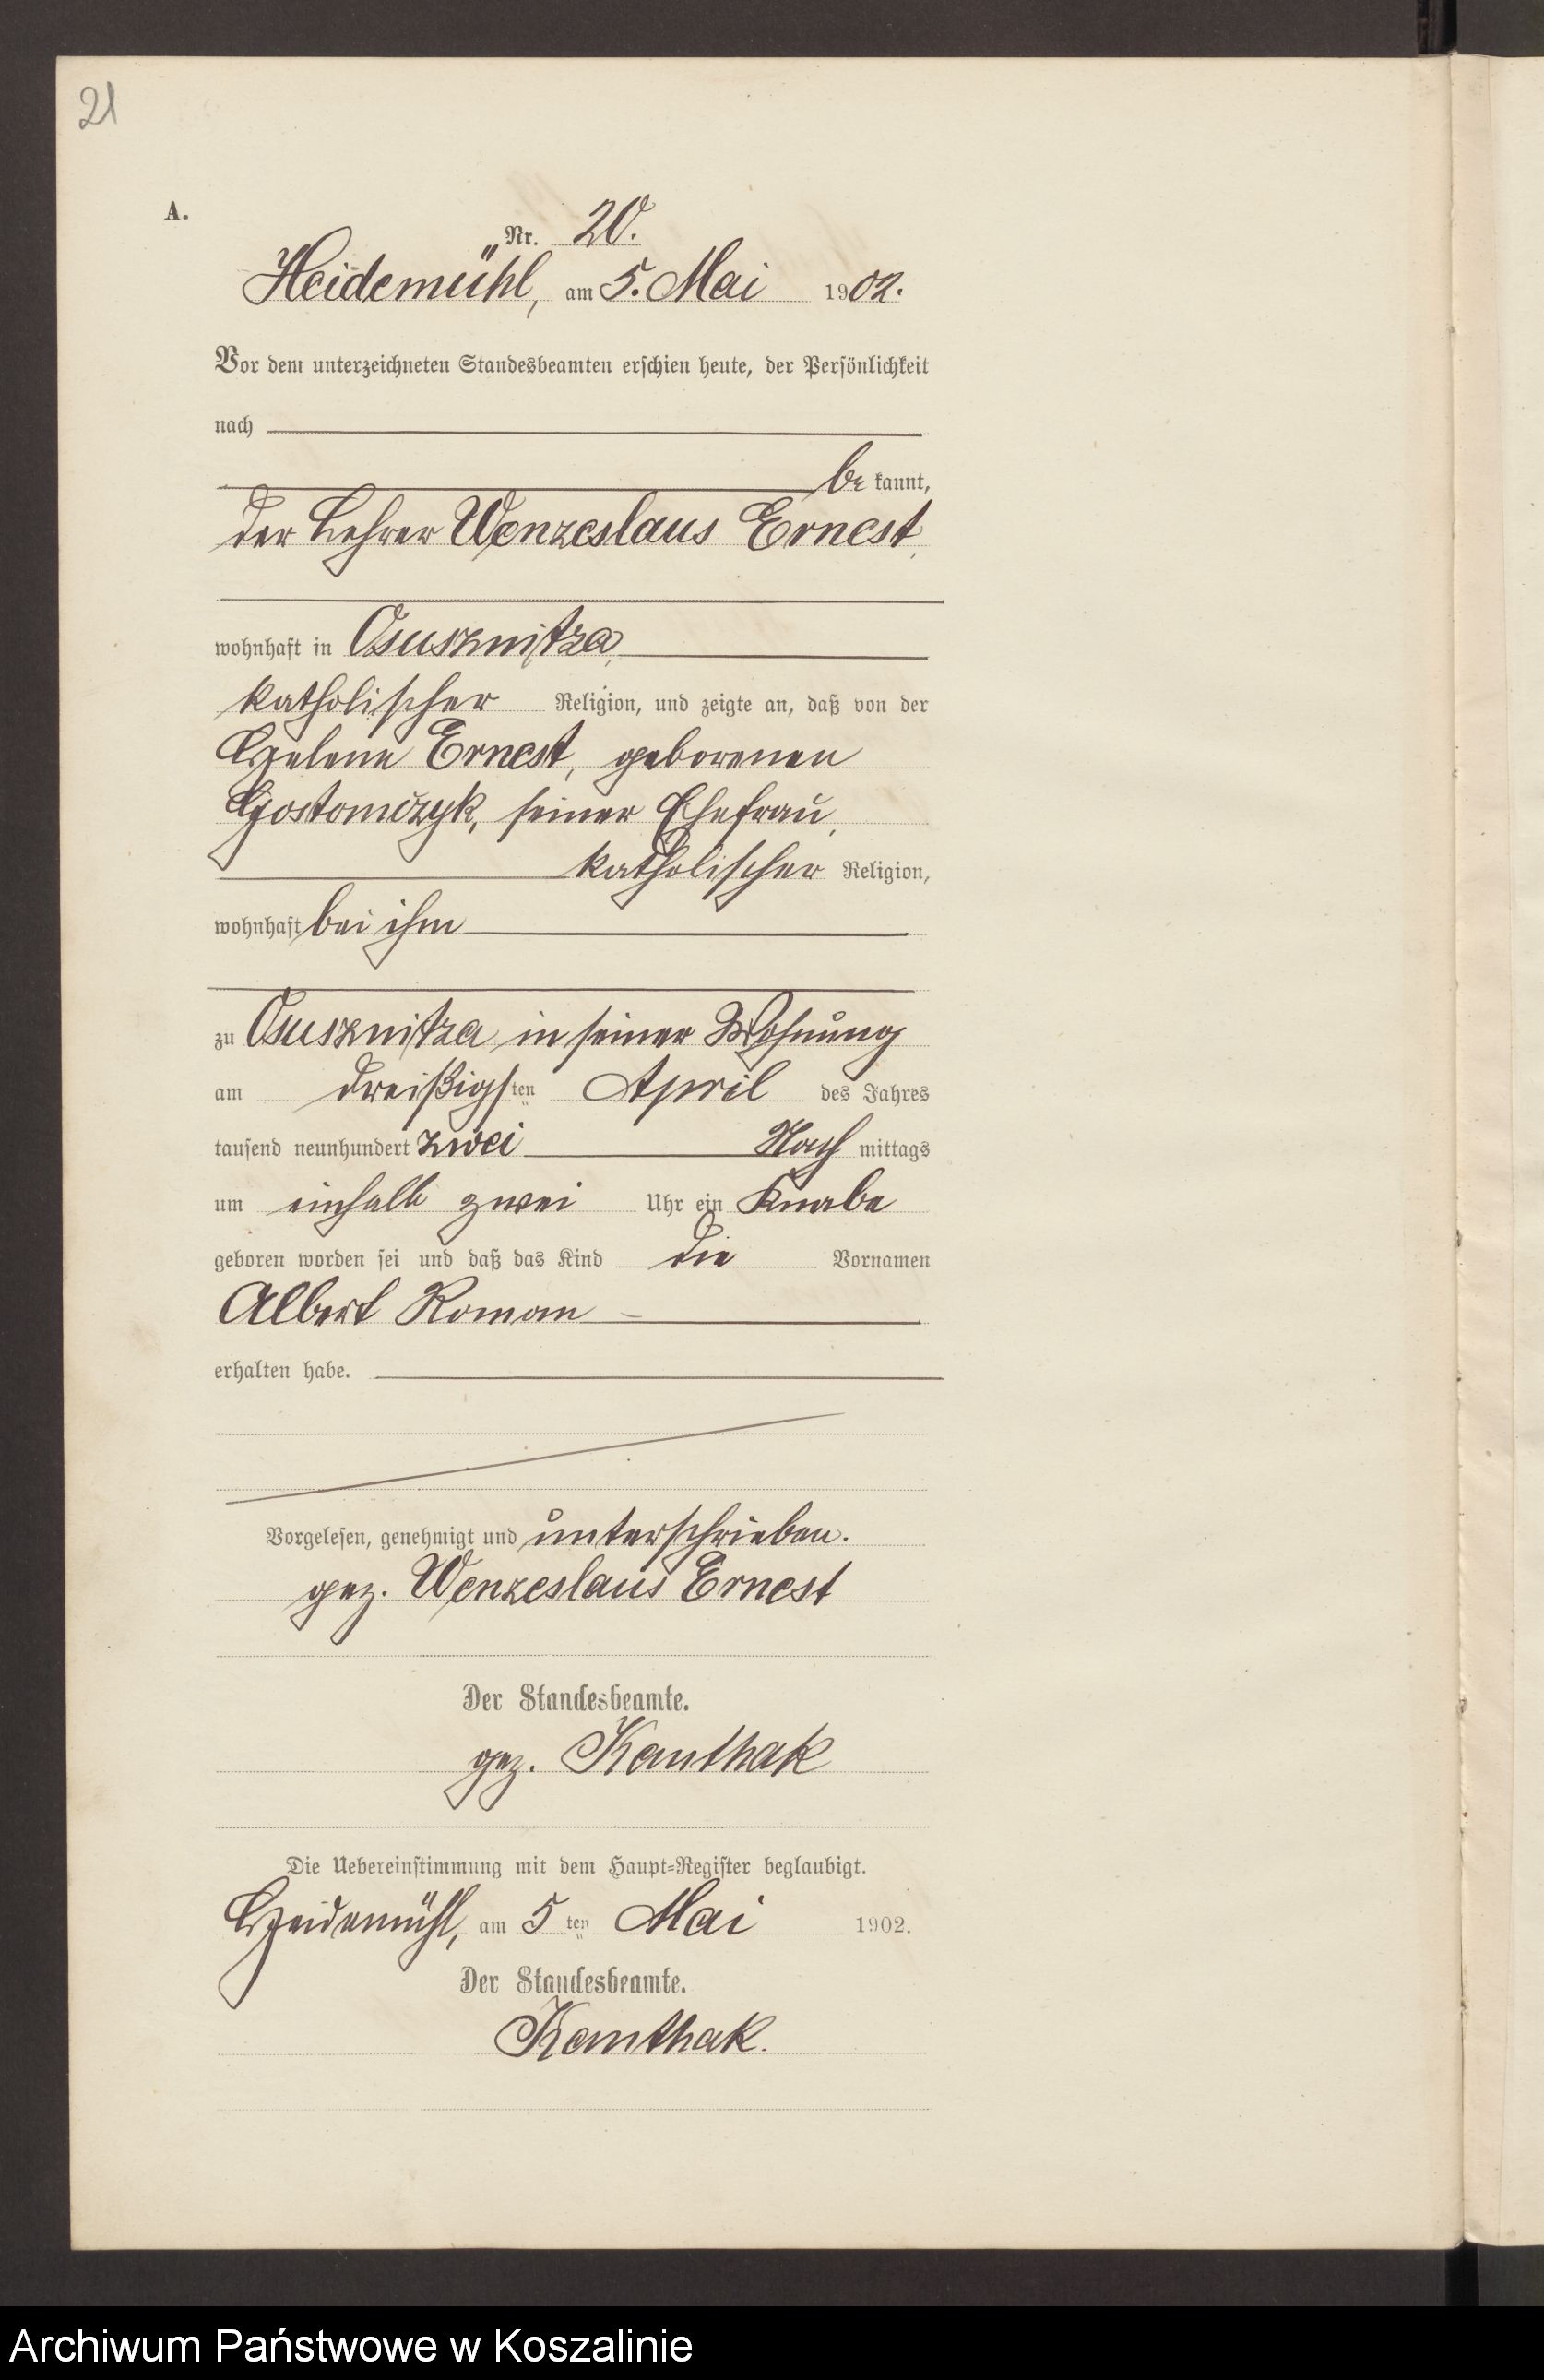 21
A.
Nr. 20.
Heidemühl, am 5. Mai 1902.
Vor dem unterzeichneten Standesbeamten erschien heute, der Persönlichkeit
nach
be kannt,
der Lehrer Wenzeslaus Ernest,
wohnhaft in Osusznitza,
katholischer Religion, und zeigte an, daß von der
Helene Ernest, geborenen
Gostomczyk, seiner Ehefrau,
katholischer Religion,
wohnhaft bei ihm
zu Osusznitza in seiner Wohnung
am dreißigsten April des Jahres
tausend neunhundert zwei Nach mittags
um einhalb zwei Uhr ein Knabe
geboren worden sei und daß das Kind die Vornamen
Albert Roman
erhalten habe.
Vorgelesen, genehmigt und unterschrieben.
gez. Wenzeslaus Ernest
Der Standesbeamte.
gez. Kanthak
Die Uebereinstimmung mit dem Haupt-Register beglaubigt.
Heidemühl, am 5ten Mai 1902.
Der Standesbeamte.
Kanthak.
Archiwum Państwowe w Koszalinie